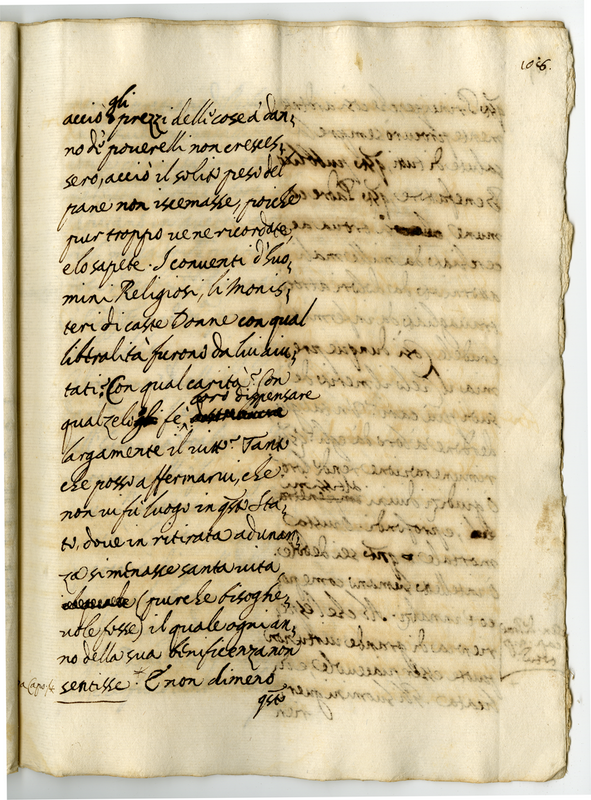 106.
acciò gli prezzi delli cose à dan,
no de' pouerelli non cresces,
sero, acciò il solito peso del
pane non iscemasse, poiche
pur troppo ue ne ricordate,
e lo sapete. I conuenti d'huo,
mini Religiosi, li Monis,
teri di caste Donne con qual
libtralità furono da lui aiu,
tati? Con qual carità? Con
qual zelo fè loro dispensare
largamente il uitto? Tanto
che posso affermarui, che
non ui fù luogo in qsto Sta,
to, doue in ritirata adunan,
za si menasse santa uita
(purche bisogne,
uole fosse) il quale ogni an,
no della sua beneficenza non
sentisse. E non dimeno
qsto